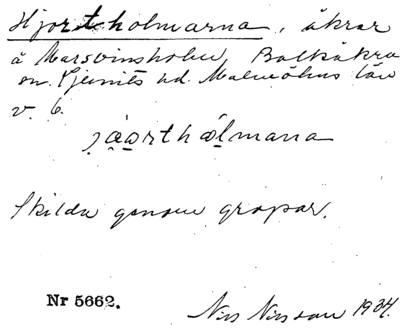 Hjortholmarna, åkrar
å Marsvinsholm, Balkåkra
sn. Ljunits hd. Malmöhus län
v. 6.
Skilda genom gropar.
Nr 5662.
Nils Nilsson 1934.